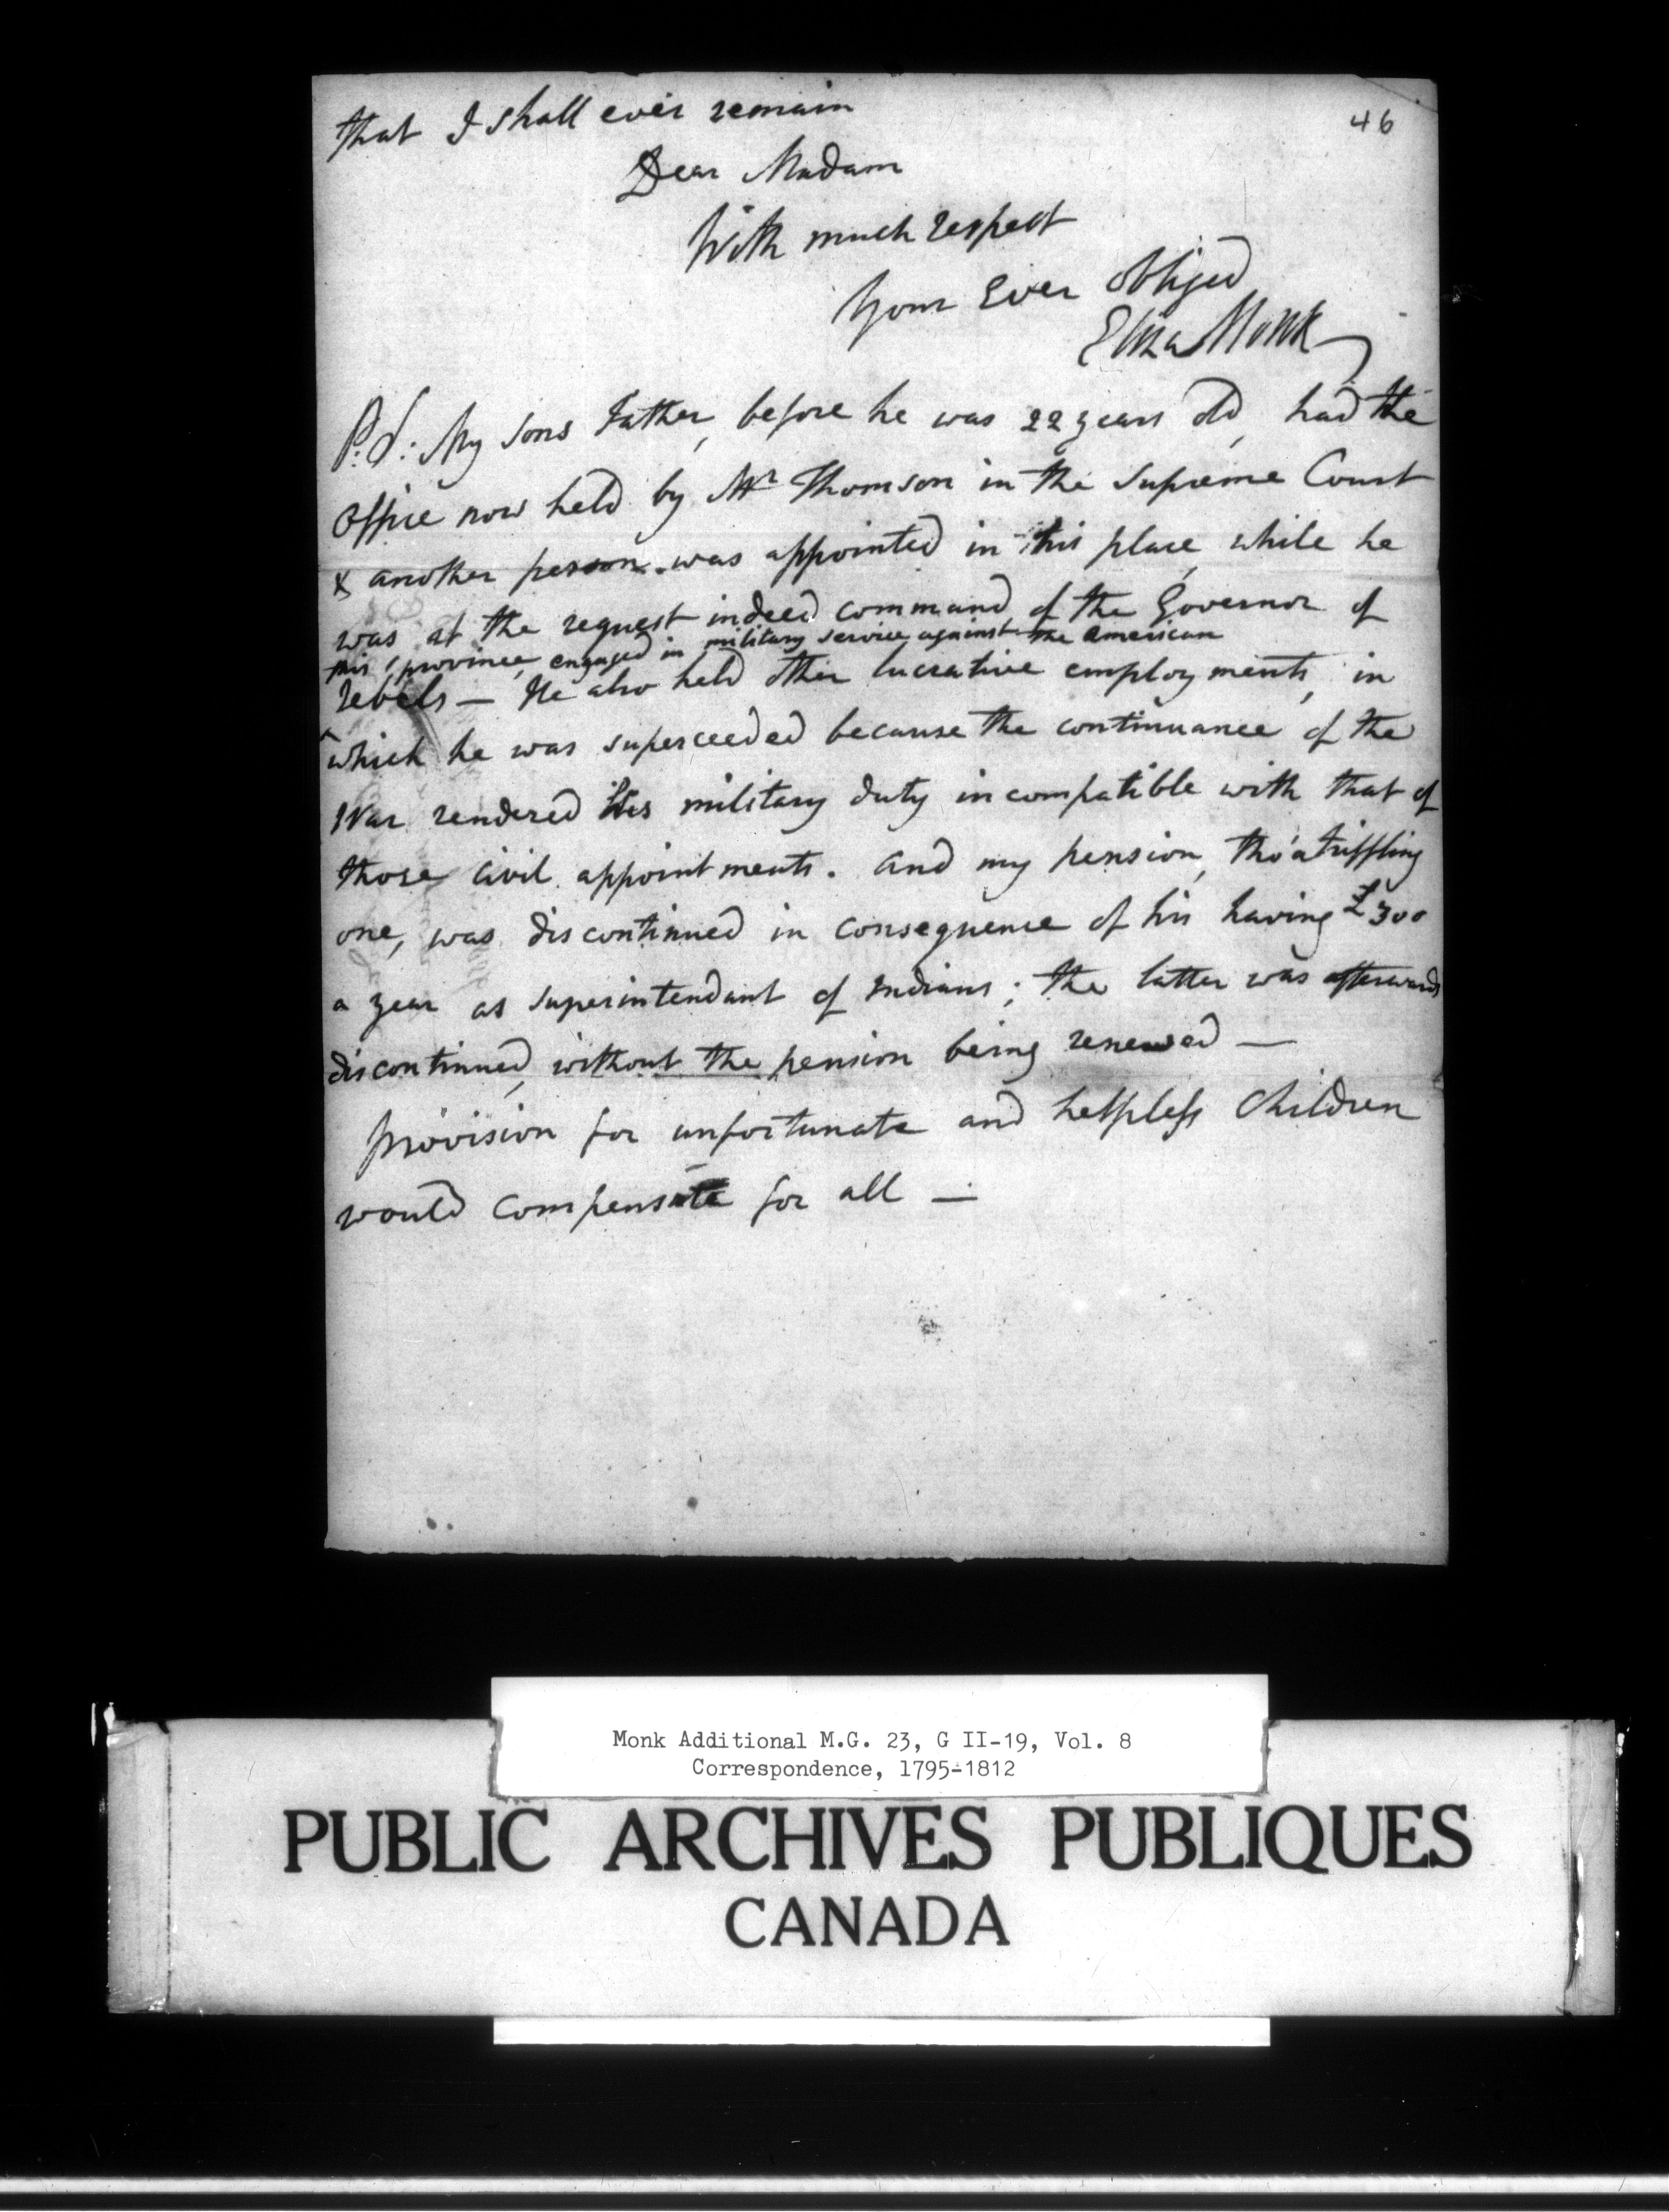 46
that I shall ever remain
Dear Madam
With much respect
Your Ever obliged
Eliza Monk
P.S: My sons Father, before he was 22 years old, had the
office now held by Mr Thomson in the Supreme Court
& another person was appointed in his place, while he
was, at the request indeed command of the Governor of
this province, engaged in military service against the American
rebels — He also held other lucrative employments, in
which he was superceeded because the continuance of the
War rendered his military duty incompatible with that of
those civil appointments. and my pension, tho' a triffling
one, was discontinued in consequence of his having £300
a year as superintendant of Indians; the latter was afterwards
discontinued, without the pension being renewed —
provision for unfortunate and helpless children
would compensate for all —
Monk Additional M.G. 23, G II-19, Vol. 8
Correspondence, 1795-1812
PUBLIC ARCHIVES PUBLIQUES
CANADA